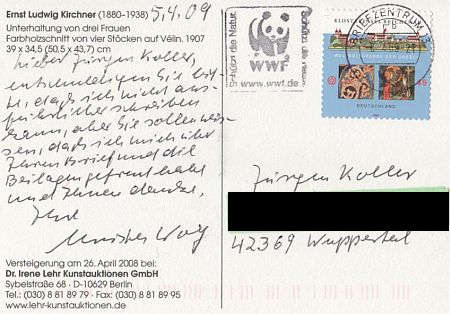 Ernst Ludwig Kirchner (1880–1938)
5.4.09
Unterhaltung von drei Frauen
Farbholzschnitt von vier Stöcken auf Vélin. 1907
39 x 34,5 (50,5 x 43,7) cm
Lieber Jürgen Koller,
entschuldigen Sie bit-
te, daß ich nicht aus-
führlicher schreiben
kann, aber Sie sollen wis-
sen, daß ich mich über
Ihren Brief und die
Beilagen gefreut habe
und Ihnen danke,
Ihre
Christa Wolf
Versteigerung am 26. April 2008 bei:
Dr. Irene Lehr Kunstauktionen GmbH
Sybelstraße 68 · D-10629 Berlin
Tel.: (030) 8 81 89 79 · Fax: (030) 8 81 89 95
www.lehr-kunstauktionen.de
Schützt die Natur.
Schützt die Natur.
WWF
www.wwf.de
BRIEFZENTRUM
KLOST
WELTKULTURERBE DER UNESCO
45
DEUTSCHLAND
Jürgen Koller
42369 Wuppertal